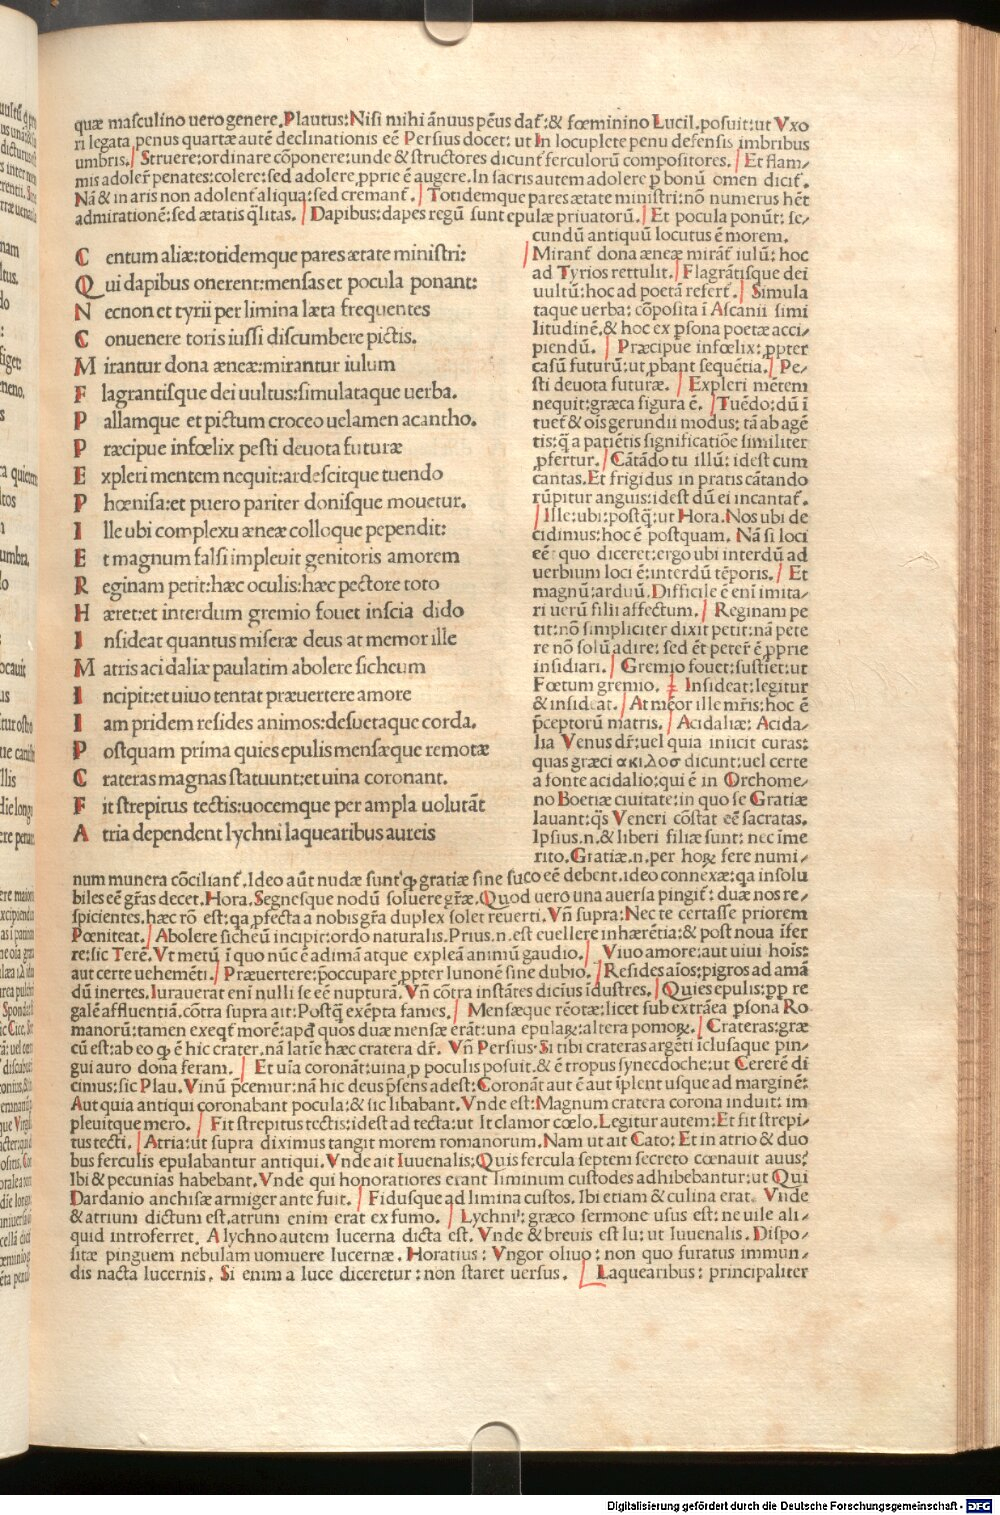 quæ masculino uero genere. Plautus: Nisi mihi ãnuus pẽus daƭ: & fœminino Lucil. posuit: ut Vxo
ri legata penus quartæ autẽ declinationis eẽ Persius docet: ut In locuplete penu defensis imbribus
umbris. Struere: ordinare cõponere: unde & structores dicunƭ ferculorũ compositores. Et flam/
mis adolerƭ penates: colere: sed adolere ꝓprie ẽ augere. In sacris autem adolere ꝑ bonũ omen diciƭ.
Nã & in aris non adolenƭ aliqua: sed cremanƭ. Totidemque pares ætate ministri: nõ numerus hẽt
admirationẽ: sed ætatis q̃litas. Dapibus: dapes regũ sunt epulæ priuatorũ. Et pocula ponũt: se/
cundũ antiquũ locutus ẽ morem.
C entum aliæ: totidemque pares ætate ministri:
Q ui dapibus onerent: mensas et pocula ponant:
N ecnon et tyrii per limina læta frequentes
C onuenere toris iussi discumbere pictis.
M irantur dona æneæ: mirantur iulum
F lagrantisque dei uultus: simulataque uerba.
P allamque et pictum croceo uelamen acantho.
P ræcipue infœlix pesti deuota futuræ
E xpleri mentem nequit: ardescitque tuendo
P hœnisa: et puero pariter donisque mouetur.
I lle ubi complexu æneæ colloque pependit:
E t magnum falsi impleuit genitoris amorem
R eginam petit: hæc oculis: hæc pectore toto
H æret: et interdum gremio fouet inscia dido
I nsideat quantus miseræ deus at memor ille
M atris acidaliæ paulatim abolere sicheum
I ncipit: et uiuo tentat præuertere amore
I am pridem resides animos: desuetaque corda.
P ostquam prima quies epulis mensæque remotæ
C rateras magnas statuunt: et uina coronant.
F it strepitus tectis: uocemque per ampla uolutãt
A tria dependent lychni laquearibus aureis
Miranƭ dona æneæ mirãƭ iulũ: hoc
ad Tyrios rettulit. Flagrãtisque dei
uultũ: hoc ad poetã referƭ. Simula
taque uerba: cõposita ĩ Ascanii simi
litudinẽ. & hoc ex ꝑsona poetæ acci/
piendũ. Præcipue infœlix: ꝓpter
casũ futurũ: ut ꝓbant sequẽtia. Pe/
sti deuota futuræ. Expleri mẽtem
nequit: græca figura ẽ. Tuẽdo: dũ ĩ
tueƭ & oĩs gerundii modus: tã ab agẽ
tis: q̃ a patiẽtis significatiõe similiter
ꝓfertur. Cãtãdo tu illũ: idest cum
cantas. Et frigidus in pratis cãtando
rũpitur anguis: idest dũ ei incantaƭ.
Ille: ubi: postq̃: ut Hora. Nos ubi de
cidimus: hoc ẽ postquam. Nã si loci
eẽ quo diceret: ergo ubi interdũ ad
uerbium loci ẽ: interdũ tẽporis. Et
magnũ: arduũ. Difficile ẽ enĩ imita/
ri uerũ filii affectum. Reginam pe
tit: nõ simpliciter dixit petit: nã pete
re nõ solũ adire: sed ẽt peterƭ ẽ ꝓprie
insidiari. Gremio fouet: sustĩet: ut
Fœtum gremio. Insideat: legitur
& insideat. At mẽor ille mr̃is: hoc ẽ
p̃ceptorũ matris. Acidaliæ: Acida/
lia Venus dr̃: uel quia iniicit curas:
quas græci ακιλοσ dicunt: uel certe
a fonte acidalio: qui ẽ in Orchome/
no Boetiæ ciuitate: in quo se Gratiæ
lauant: q̃s Veneri cõstat eẽ sacratas.
Ipsius .n. & liberi filiæ sunt: nec ĩme
rito. Gratiæ .n. per hoꝝ fere numi/
num munera cõcilianƭ. Ideo aũt nudæ sunt ꝙ gratiæ sine fuco eẽ debent. ideo connexæ: qa insolu
biles eẽ gr̃as decet. Hora. Segnesque nodũ soluere gr̃æ. Quod uero una auersa pingiƭ: duæ nos re/
spicientes. hæc rõ est: qa ꝓfecta a nobis gr̃a duplex solet reuerti. Vñ supra: Nec te certasse priorem
Pœniteat. Abolere sicheũ incipit: ordo naturalis. Prius .n. est euellere inhærẽtia: & post noua ĩfer
re: sic Terẽ. Vt metũ ĩ quo nũc ẽ adimã atque expleã animũ gaudio. Viuo amore: aut uiui hoĩs:
aut certe uehemẽti. Præuertere: p̃occupare ꝓpter Iunonẽ sine dubio. Resides aĩos: pigros ad amã
dũ inertes. Iurauerat enĩ nulli se eẽ nupturã. Vñ cõtra instãtes diciũs ĩdustres. Quies epulis: ꝓp re
galẽ affluentiã. cõtra supra ait: Postq̃ exẽpta fames. Mensæque rẽotæ: licet sub extrãea ꝑsona Ro
manorũ: tamen exeqƭ morẽ: apđ quos duæ mensæ erãt: una epulaꝝ: altera pomoꝝ. Crateras: græ
cũ est: ab eo ꝙ ẽ hic crater. nã latĩe hæc cratera dr̃. Vñ Persius. Si tibi crateras argẽti ĩclusaque pin/
gui auro dona feram. Et uĩa coronãt: uina ꝓ poculis posuit. & ẽ tropus synecdoche: ut Cererẽ di
cimus: sic Plau. Vinũ p̃cemur: nã hic deus p̃sens adest: Coronãt aut ẽ aut ĩplent usque ad marginẽ:
Aut quia antiqui coronabant pocula: & sic libabant. Vnde est: Magnum cratera corona induit: im
pleuitque mero. Fit strepitus tectis: idest ad tecta: ut It clamor cœlo. Legitur autem: Et fit strepi/
tus tecti. Atria: ut supra diximus tangit morem romanorum. Nam ut ait Cato: Et in atrio & duo
bus ferculis epulabantur antiqui. Vnde ait Iuuenalis: Quis fercula septem secreto cœnauit auus?
Ibi & pecunias habebant. Vnde qui honoratiores erant liminum custodes adhibebantur: ut Qui
Dardanio anchisæ armiger ante fuit. Fidusque ad limina custos. Ibi etiam & culina erat. Vnde
& atrium dictum est. atrum enim erat ex fumo. Lychni: græco sermone usus est: ne uile ali/
quid introferret. A lychno autem lucerna dicta est. Vnde & breuis est lu: ut Iuuenalis. Dispo/
sitæ pinguem nebulam uomuere lucernæ. Horatius: Vngor oliuo: non quo furatus immun/
dis nacta lucernis. Si enim a luce diceretur: non staret uersus. Laquearibus: principaliter
Digitalisierung gefördert durch die Deutsche Forschungsgemeinschaft - DFG